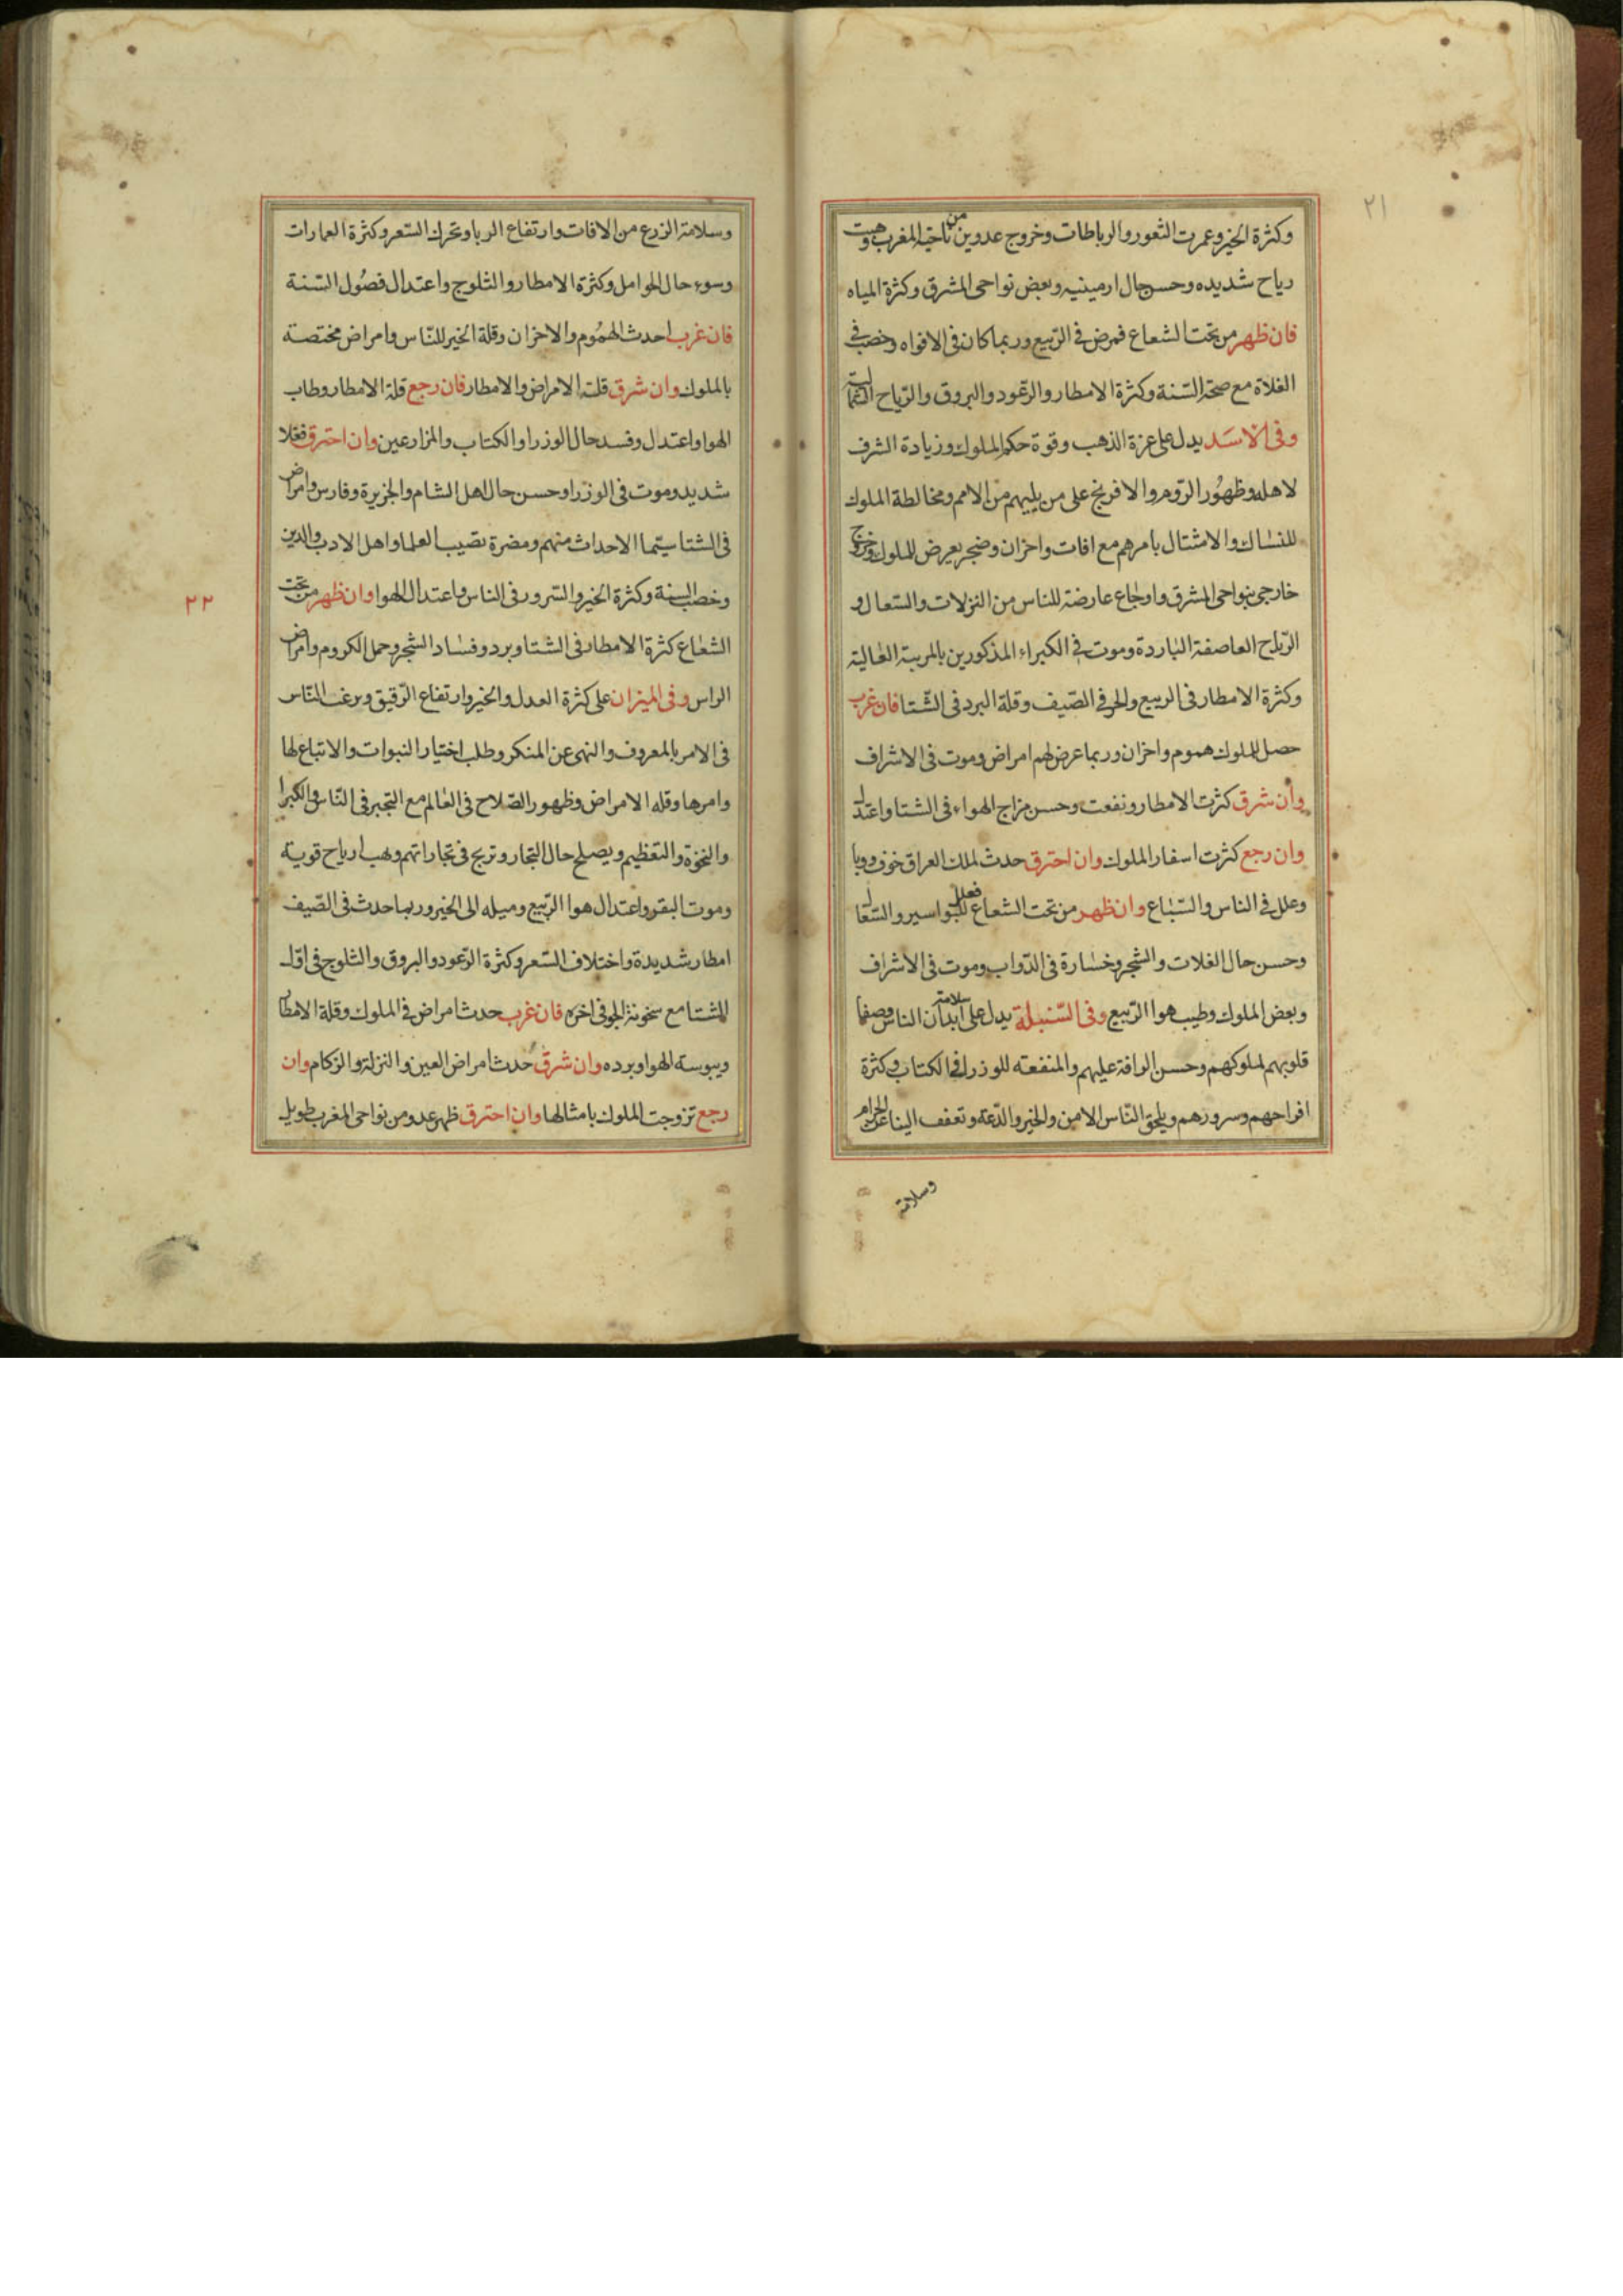 ٢١
وكثرة الخير وعمرت الثغور والرباطات وخروج عدو ين من ناحية المغرب وهبت
رياح شديده وحسن حال ارمينيه وبعض نواحى المشرق وكثرة المياه
فان ظهر من تحت الشعاع فمرض فى الربيع وربما كان فى الافواه وخصب فى
الغلاة مع صحة السنة وكثرة الامطار والرعود والبروق والرياح
وفى الاسد يدل على عزة الذهب وقوة حكم الملوك وزيادة الشرف
لاهله وظهور الروم والافرنج على من يليهم من الامم ومخالطة الملوك
للنساك والامتثال بامرهم مع افات واحزان وضجر يعرض للملوك وخروج
خارجى بنواحى المشرق واوجاع عارضة للناس من النزلات والسعال و
الرياح العاصفة الباردة وموت فى الكبراء المذكورين بالمرتبة العالية
وكثرة الامطار فى الربيع والحر فى الصيف وقلة البرد فى الشتا فان غرب
حصل للملوك هموم واحزان وربما عرض لهم امراض وموت فى الاشراف
وان شرق كثرت الامطار ونفعت وحسن مزاج الهواء فى الشتا واعتدل
وان رجع كثرت اسفار الملوك وان احترق حدث لملك العراق خوف ووبا
وعلل فى الناس والسباع وان ظهر من تحت الشعاع فعلل للبواسير والسعال
وحسن حال الغلات والشجر وخسارة فى الدواب وموت فى الاشراف
وبعض الملوك وطيب هوا الربيع وفى السنبلة يدل على سلامة ابدان الناس وصفا
قلوبهم لملوكهم وحسن الرافة عليهم والمنفعة للوزرا فى الكتاب وكثرة
افراحهم وسرورهم ويلحق الناس الامن والخير والدعة وتعفف النسا عن الحرام
وسلامة
وسلامة الزرع من الافات وارتفاع الربا وتحرك السعر وكثرة العمارات
وسوء حال الحوامل وكثرة الامطار والثلوج واعتدال فصول السنة
فان غرب احدث الهموم والاحزان وقلة الخير للناس وامراض مختصة
بالملوك وان شرق قلت الامراض والامطار فان رجع قلة الامطار وطاب
الهوا واعتدل وفسد حال الوزرا والكتاب والمزارعين وان احترق فغلا
شديد وموت فى الوزرا وحسن حال اهل الشام والجزيرة وفارس وامراض
فى الشتا سيما الاحداث منهم ومضرة تصيب العلما واهل الادب والدين
وخصب السنة وكثرة الخير والسرور فى الناس واعتدال الهوا وان ظهر من تحت
٢٢
الشعاع كثرة الامطار فى الشتا وبرد وفساد الشجر وحمل الكروم وامراض
الراس وفى الميزان على كثرة العدل والخير وارتفاع الرقيق ويرغب الناس
فى الامر بالمعروف والنهى عن المنكر وطلب اختيار النبوات والاتباع لها
وامرها وقله الامراض وظهور الصلاح فى العالم مع التجبر فى الناس والكبرا
والنخوة والتعظيم ويصلح حال التجار وتربح فى تجاراتهم وهب ارياح قوية
وموت البقر واعتدال هوا الربيع وميله الى الخير وربما حدث فى الصيف
امطار شديدة واختلاف السعر وكثرة الرعود والبروق والثلوج فى اول
الشتا مع سخونة الجو فى اخره فان غرب حدث امراض فى الملوك وقلة الامطار
ويبوسة الهوا وبرده وان شرق حدث امراض العين والنزلة والزكام وان
رجع تزوجت الملوك بامثالها وان احترق ظهر عدو من نواحى المغرب طويل